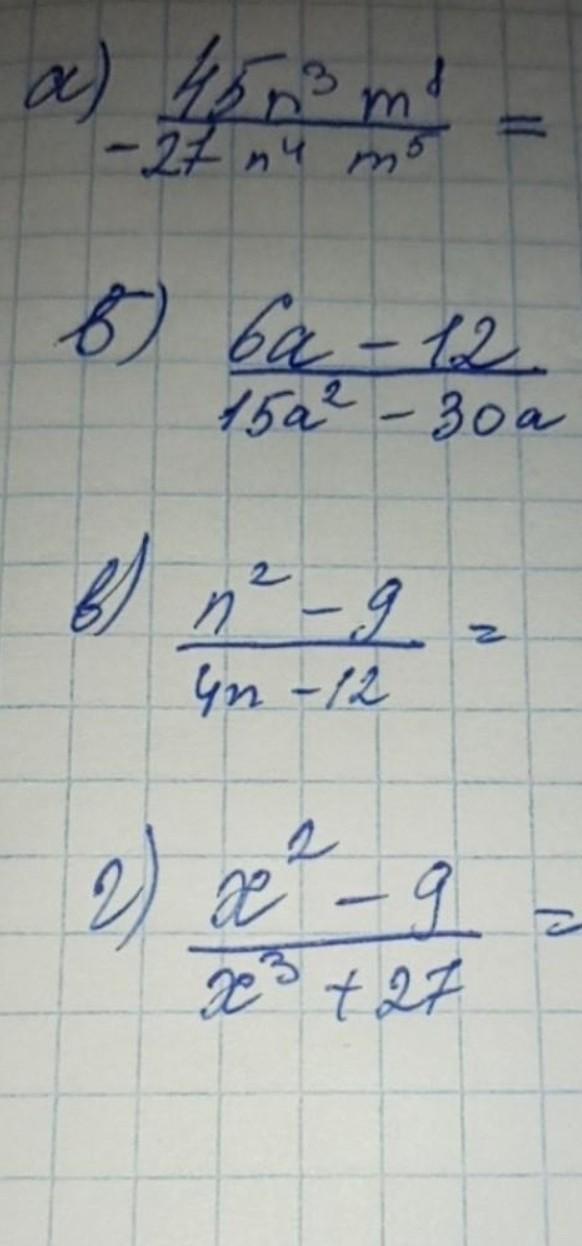 а) 45n³ m⁸ =
-27 n⁴ m⁵
б) 6a - 12
15a² - 30a
в) n² - 9 =
4n - 12
г) x² - 9 =
x³ + 27